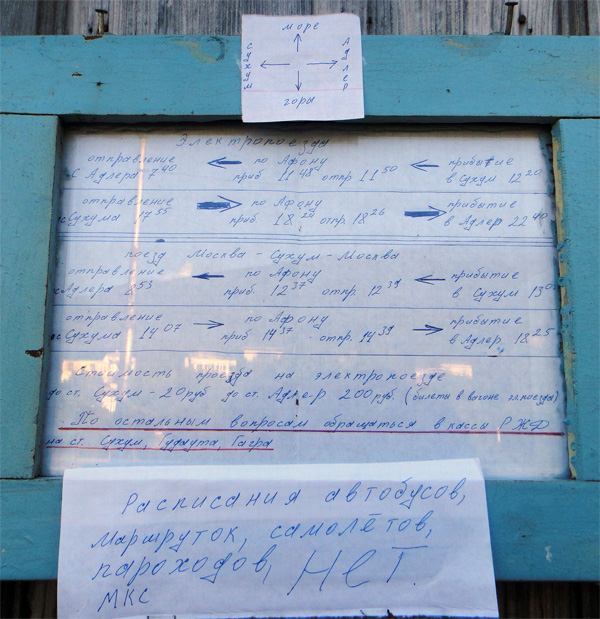 море
Сухум
Адлер
горы
Электропоезда
отправление по Афону прибытие
с Адлера 7 40 приб. 11 48 отпр 11 50 в Сухум 12 20
отправление по Афону прибытие
с Сухума 17 55 приб. 18 25 отпр. 18 26 в Адлер 22 40
поезд Москва - Сухум - Москва
отправление по Афону прибытие
с Адлера 8 53 приб. 12 37 отпр. 12 39 в Сухум
отправление по Афону прибытие
с Сухума 14 07 приб 14 37 отпр. 14 39 в Адлер 18 25
Стоимость проезда на электропоезде
до ст. Сухум - 20 руб до ст. Адлер 200 руб. (билеты в вагоне эл.поезда)
По остальным вопросам обращаться в кассы РЖД
на ст. Сухум, Гудаута, Гагра
Расписания автобусов,
маршруток, самолётов,
пароходов, НЕТ.
МКС